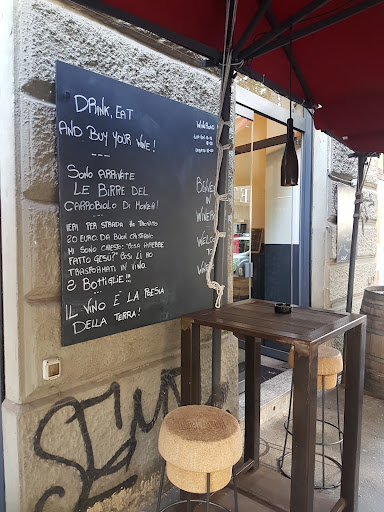 DRINK, EAT
AND BUY YOUR WINE!
SONO ARRIVATE
LE BIRRE DEL
CARROBIOLO DI MONZA!
IERI PER STRADA HO TROVATO
20 EURO. DA BUON CRISTIANO
MI SONO CHIESTO: "COSA AVREBBE
FATTO GESÙ?" COSÌ LI HO
TRASFORMATI IN VINO.
2 BOTTIGLIE!!!
IL VINO È LA POESIA
DELLA TERRA!
IN
WINE